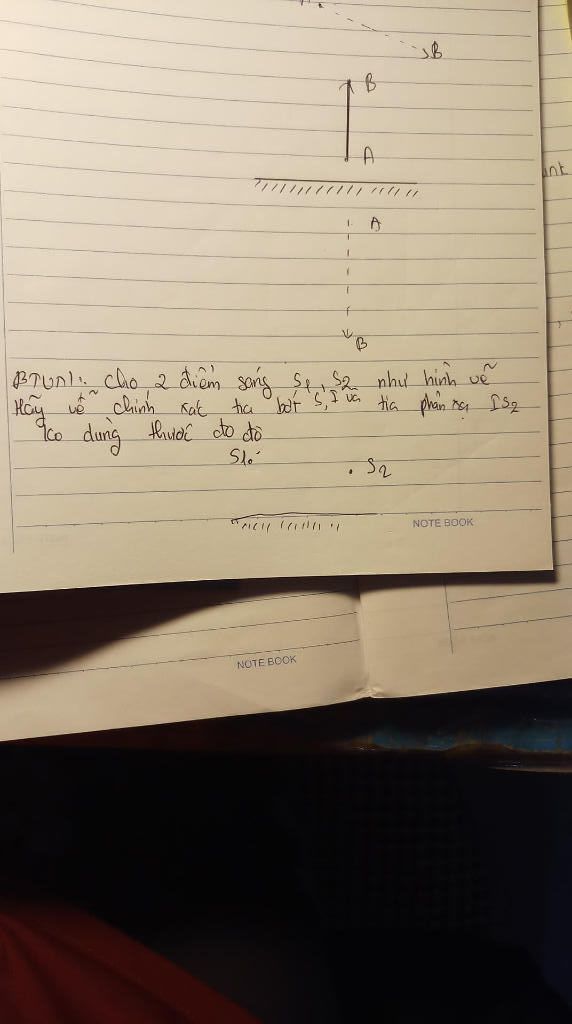 B
B
A
A
B
BTVN1: Cho 2 điểm sáng S1, S2 như hình vẽ
Hãy vẽ chính xác tia bớt S,I và tia phản xạ IS2
ko dùng thước đo độ
S1
S2
NOTE BOOK
NOTE BOOK